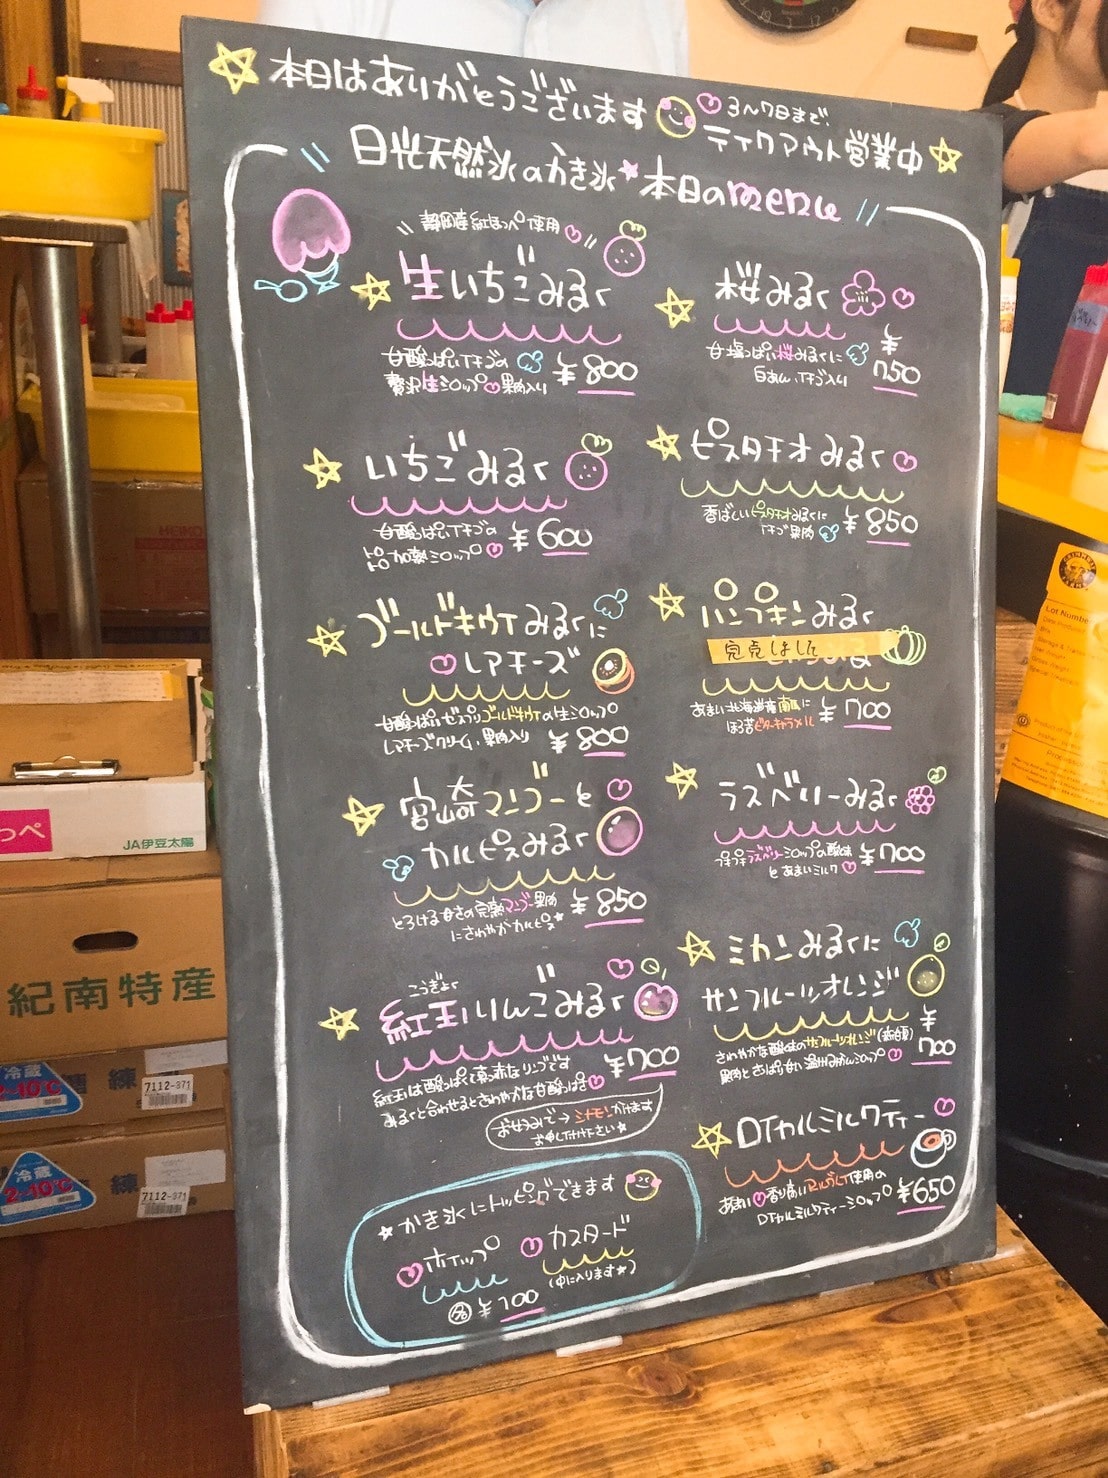 本日はありがとうございます
3〜7日まで、
テイクアウト営業中
日光天然氷のかき氷
本日のmenu
静岡産紅ほっぺ使用
生いちごみるく
甘酸っぱいイチゴの
贅沢生シロップ 果肉入り
¥800
いちごみるく
甘酸っぱいイチゴの
加熱シロップ
¥600
ゴールドキウイみるくに
レアチーズ
甘酸っぱいゼスプリゴールドキウイの生シロップ
レアチーズクリーム、果肉入り
¥800
宮崎マンゴーと
カルピスみるく
とろける甘さの完熟マンゴー果肉
にさわやかカルピス
¥850
こうぎょく
紅玉りんごみるく
紅玉は酸っぱくて真っ赤なリンゴです
みるくと合わせるとさわやかな甘酸っぱさ
¥700
お好みで→シナモンかけます
お申し付け下さい
かき氷にトッピングできます
ホイップ
カスタード
(中に入ります)
各¥100
桜みるく
甘塩っぱい桜みるくに
白あん、イチゴ入り
¥750
ピスタチオみるく
香ばしいピスタチオみるくに
イチゴ果肉
¥850
パンプキンみるく
完売しました
あまい北海道産南瓜に
ほろ苦ビターキャラメル
¥700
ラズベリーみるく
プチプチラズベリーシロップの酸味
とあまいミルク
¥700
ミカンみるくに
サンフルーツオレンジ
さわやかな酸味のサンフルーツオレンジ
果肉とさっぱり甘い温州みかんシロップ
¥700
ロイヤルミルクティー
あまい 香り高いアールグレイ使用の
ロイヤルミルクティーシロップ
¥650
っぺ
JA伊豆太陽
紀南特産
冷蔵
2~10℃
練
7112-371
冷蔵
2~10℃
練
7112-371
Lot Number